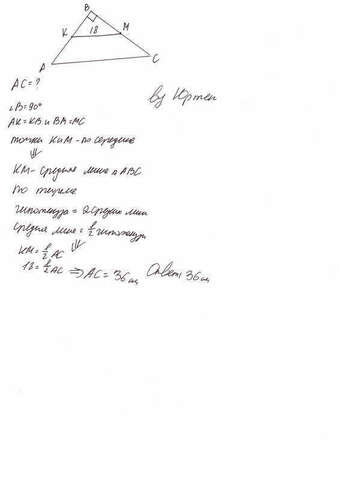 B
K 18 M
A C
AC = ?
by Юртен
∠B = 90°
AK = KB и BM = MC
точки K и M - по середине
⇓
KM - средняя линия △ ABC
по теореме
гипотенуза = 2 средних линии
средняя линия = 1/2 гипотенузы
⇓
KM = 1/2 AC
18 = 1/2 AC ⇒ AC = 36 см Ответ: 36 см